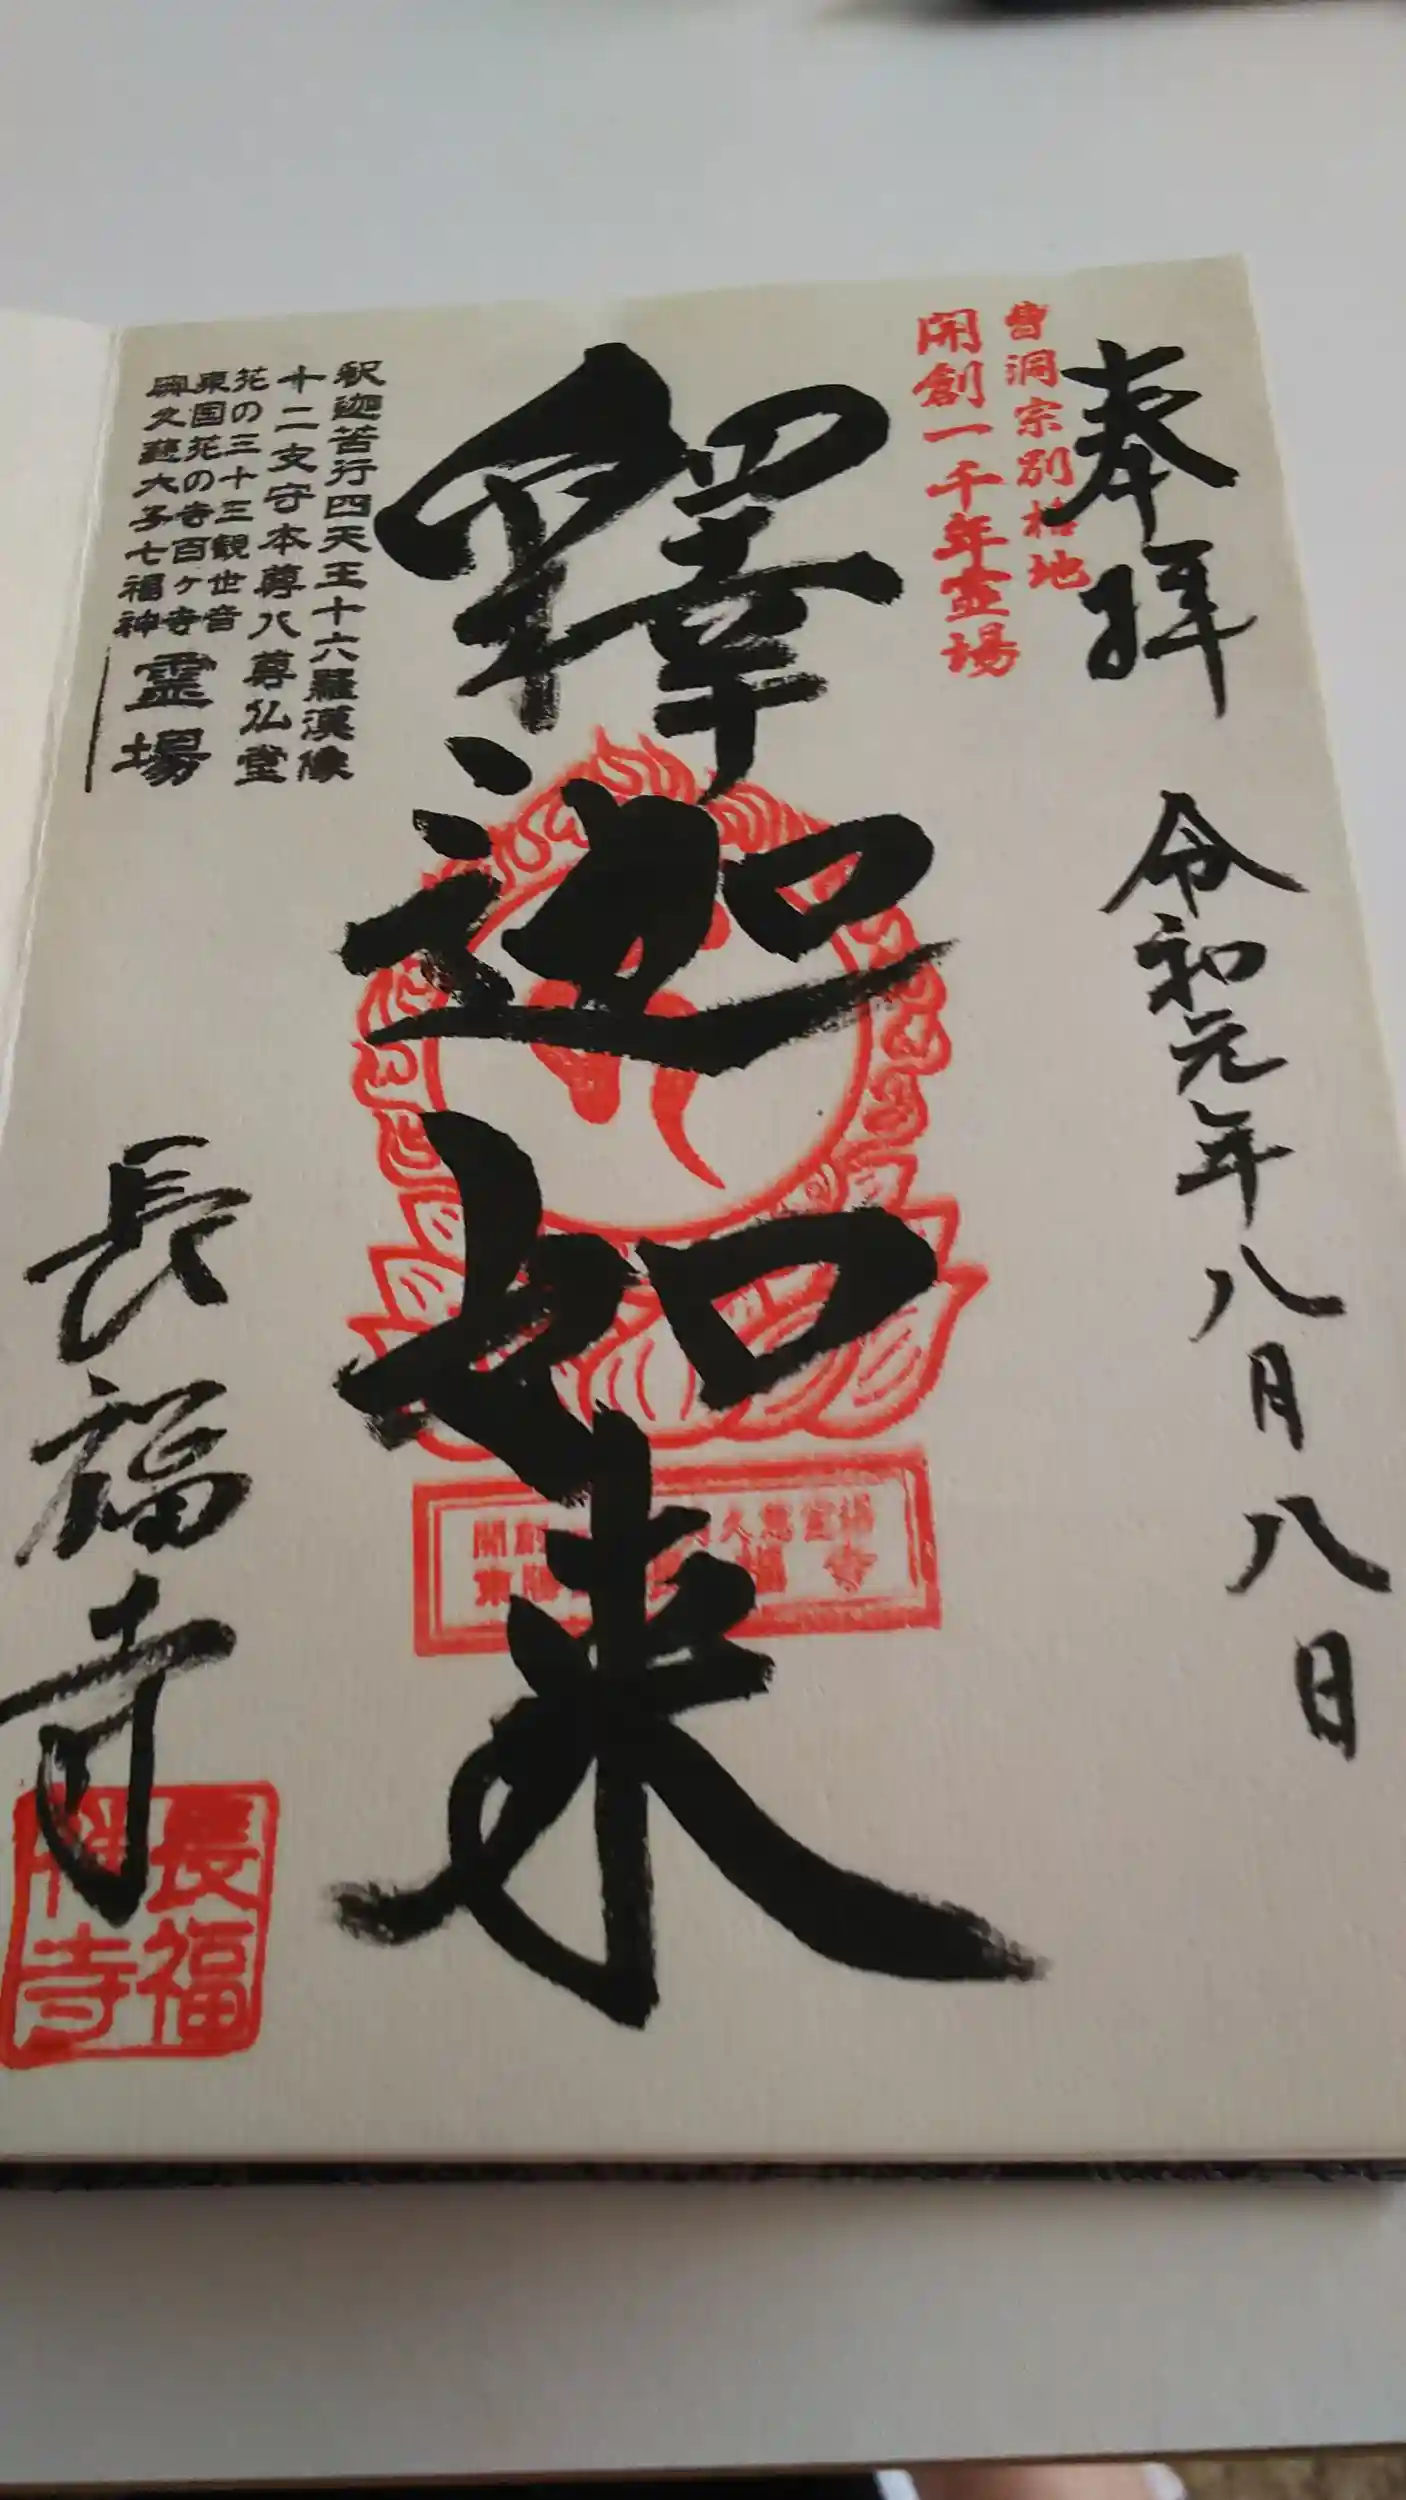 奉拝
令和元年八月八日
曹洞宗別格地
開創一千年霊場
釋迦如来
釈迦苦行四天王十六羅漢像
十二支守本尊八尊仏堂
花の三十三観世音
東国花の寺百ヶ寺
奥久慈大子七福神
霊場
長福寺
長福
寺